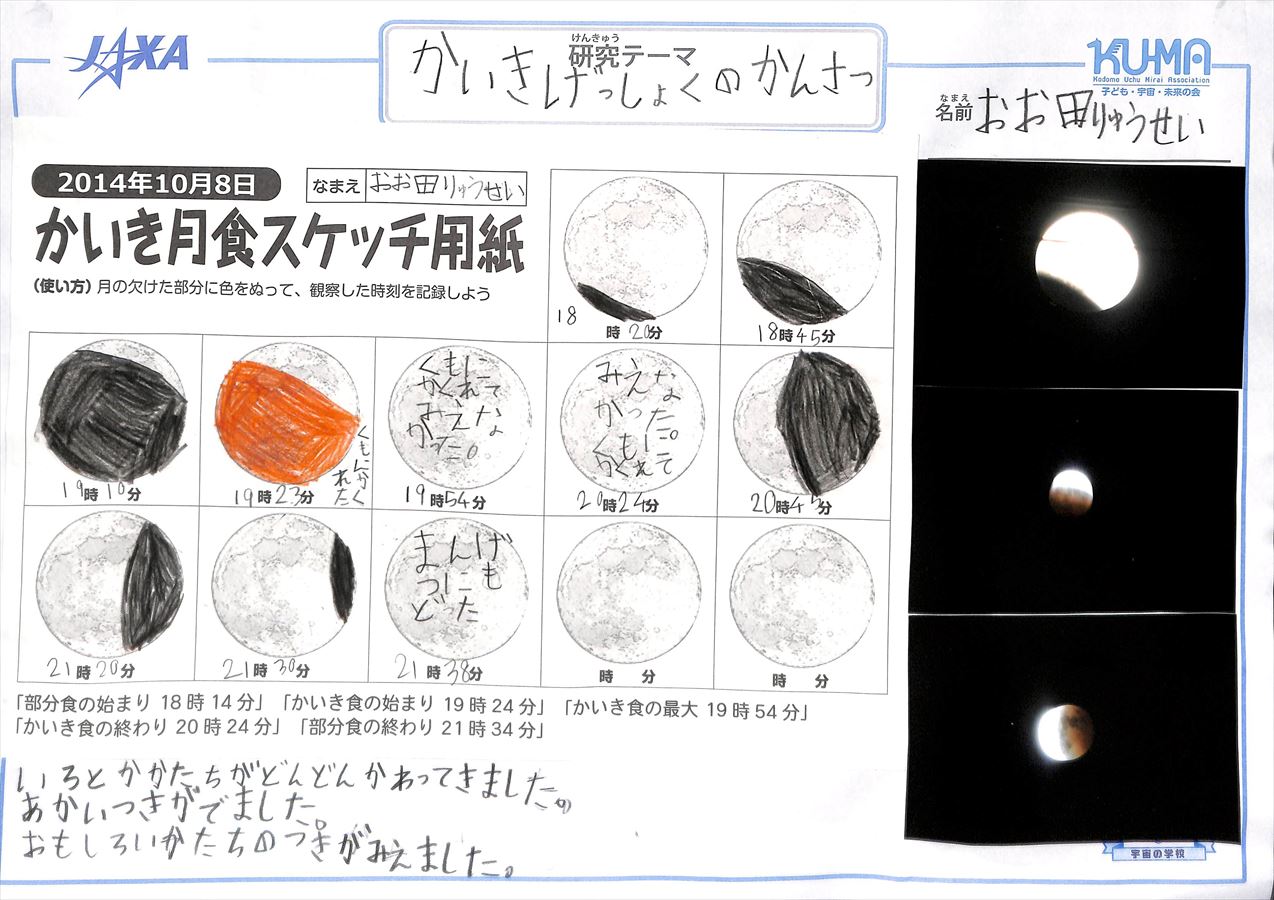 JAXA
けんきゅう
研究テーマ
かいきげっしょくのかんさつ
KUMA
Kodomo Uchu Mirai Association
子ども・宇宙・未来の会
なまえ
名前 おお田りゅうせい
2014年10月8日
なまえ おお田りゅうせい
かいき月食スケッチ用紙
(使い方)月の欠けた部分に色をぬって、観察した時刻を記録しよう
18時20分
18時45分
19時10分
くもにかく
れた
19時23分
くもに
かくれて
みえな
かった。
19時54分
みえな
かった。
くもに
かくれて
20時24分
20時45分
21時20分
21時30分
まんげ
つに
もどった
21時38分
時 分
時 分
「部分食の始まり 18時14分」「かいき食の始まり 19時24分」「かいき食の最大 19時54分」
「かいき食の終わり 20時24分」「部分食の終わり 21時34分」
いろとかかたちがどんどんかわってきました。
あかいつきがでました。
おもしろいかたちのつきがみえました。
宇宙の学校